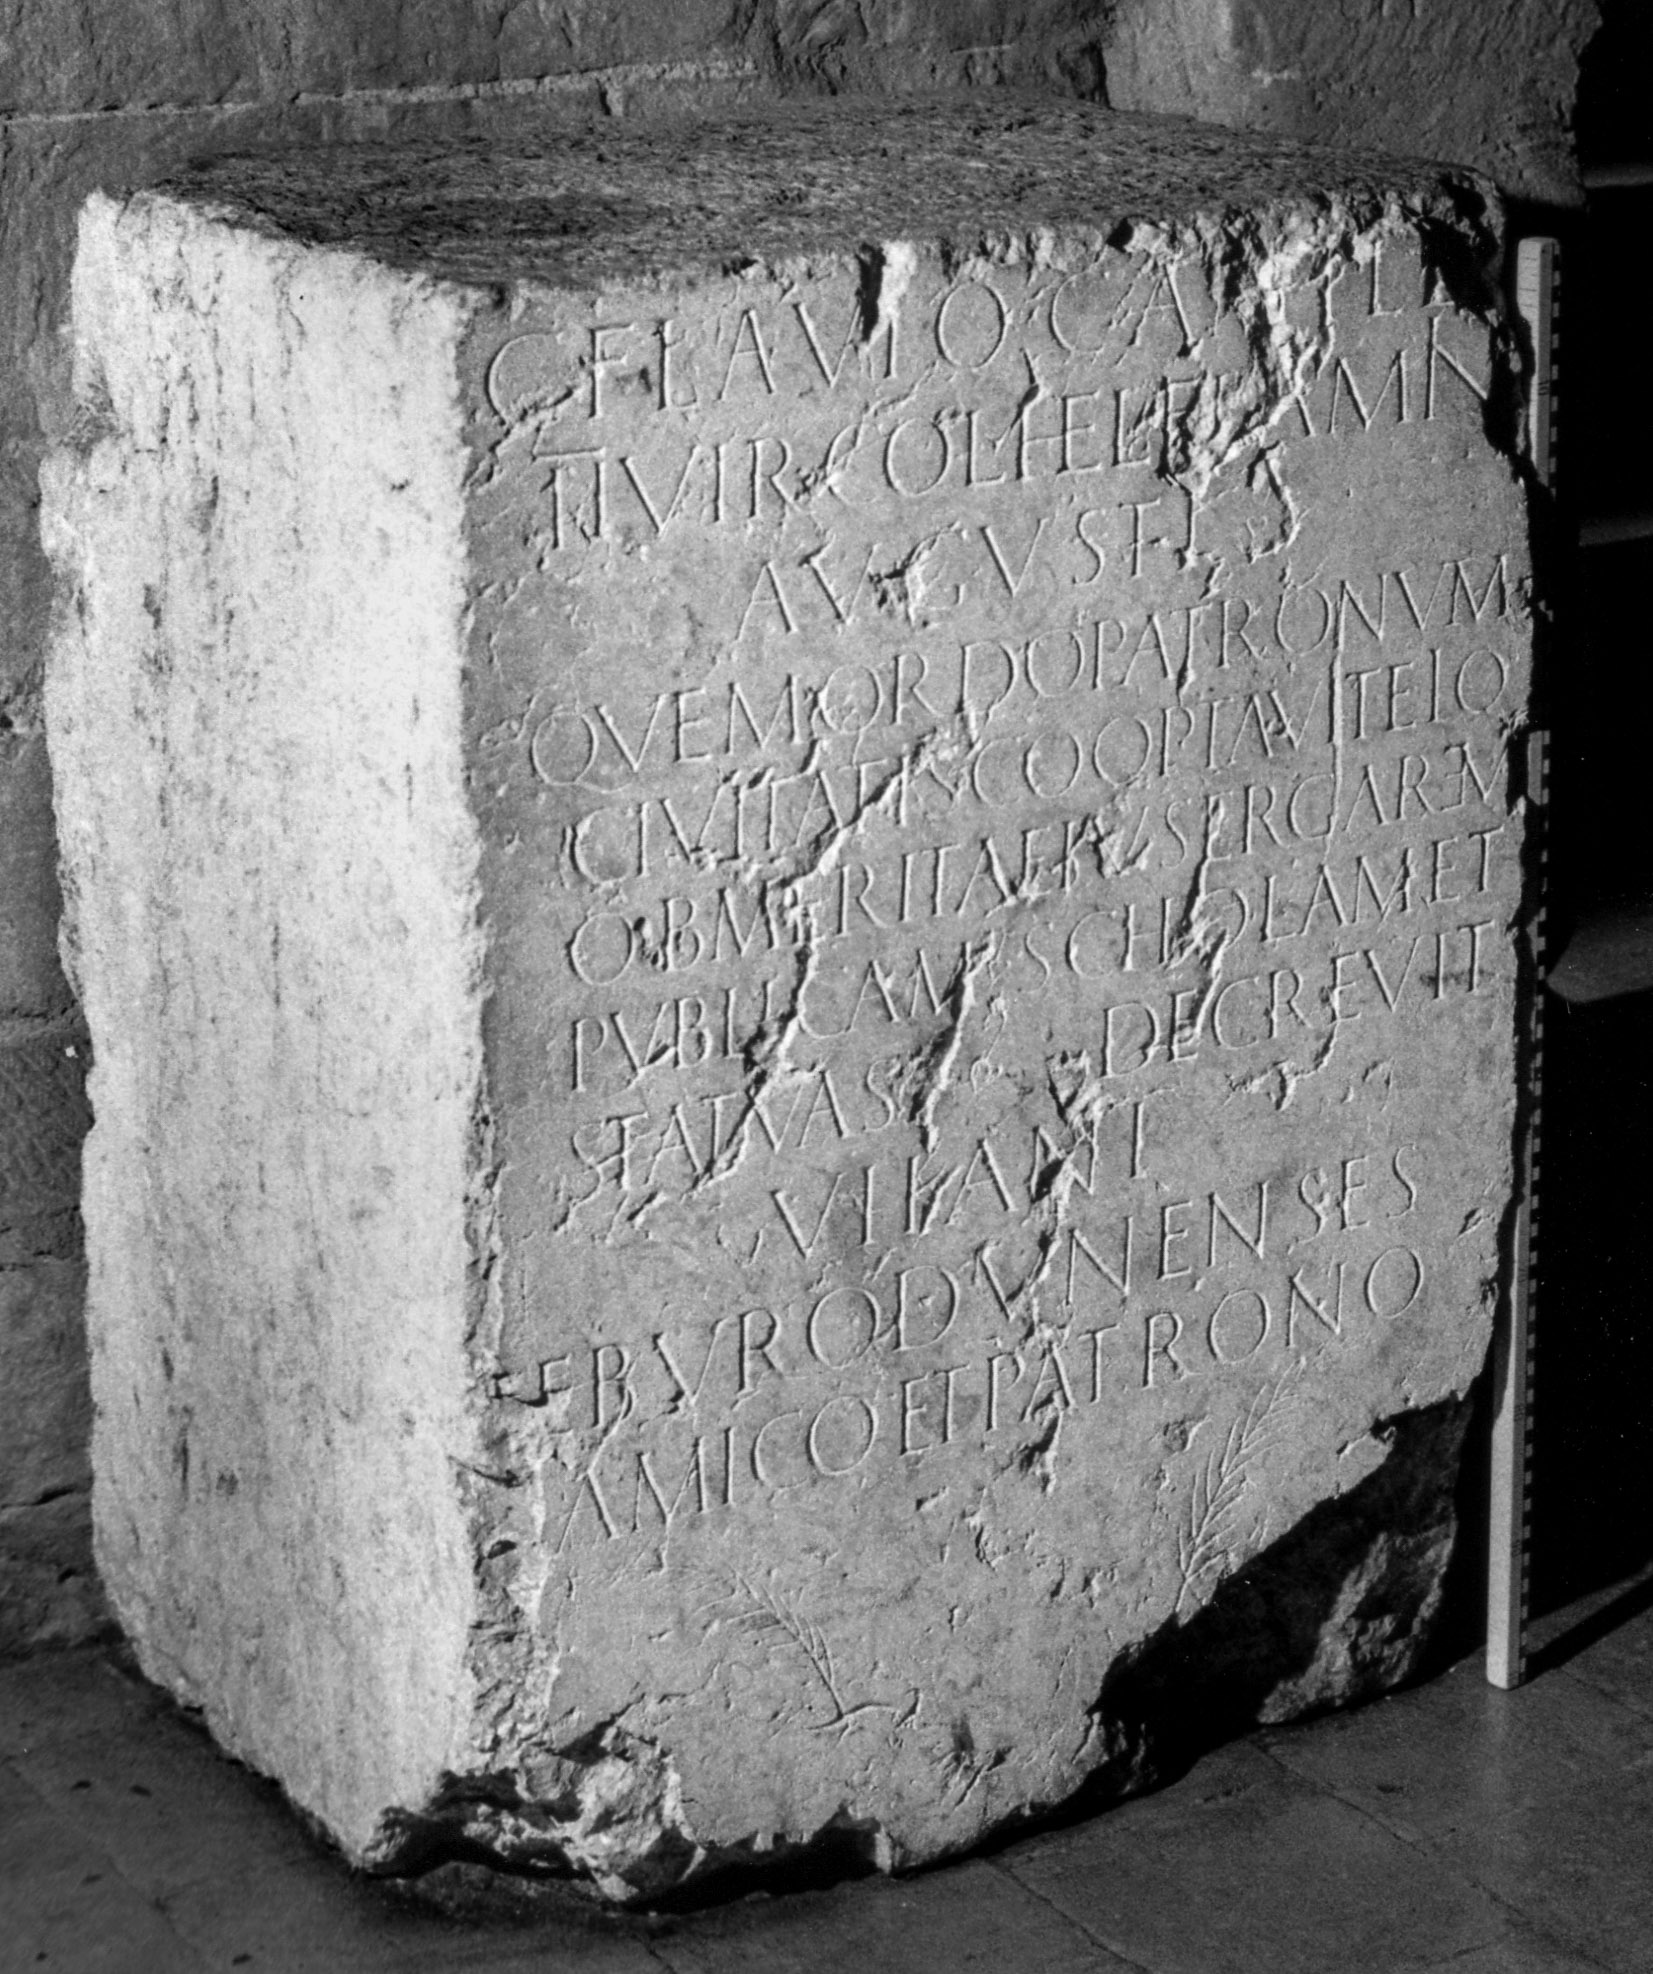 C FLAVIO CAMILL
IIVIR COL HEL FLAMN
AVGVSTI
QVEM ORDO PATRONVM
CIVITATIS COOPTAVIT EIQ
OB MERITA EIVS ERGA REM
PVBLICAM SCHOLAM ET
STATVAS DECREVIT
VIKANI
EBVRODVNENSES
AMICO ET PATRONO